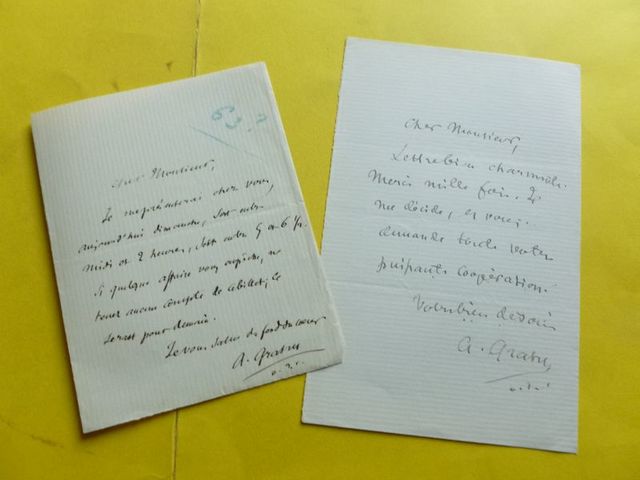 63
Cher Monsieur,
Je me présenterai chez vous,
aujourd'hui dimanche, soit entre
midi et 2 heures, soit entre 5 et 6 1/2.
Si quelque affaire vous empêche, ne
tenez aucun compte de ce billet, ce
serait pour demain.
Je vous salue du fond du cœur
A. Gratry
Cher Monsieur,
Lettre bien charmante.
Merci mille fois. Je
me décide, et vous
demande toute votre
puissante coopération.
Votre bien dévoué
A. Gratry